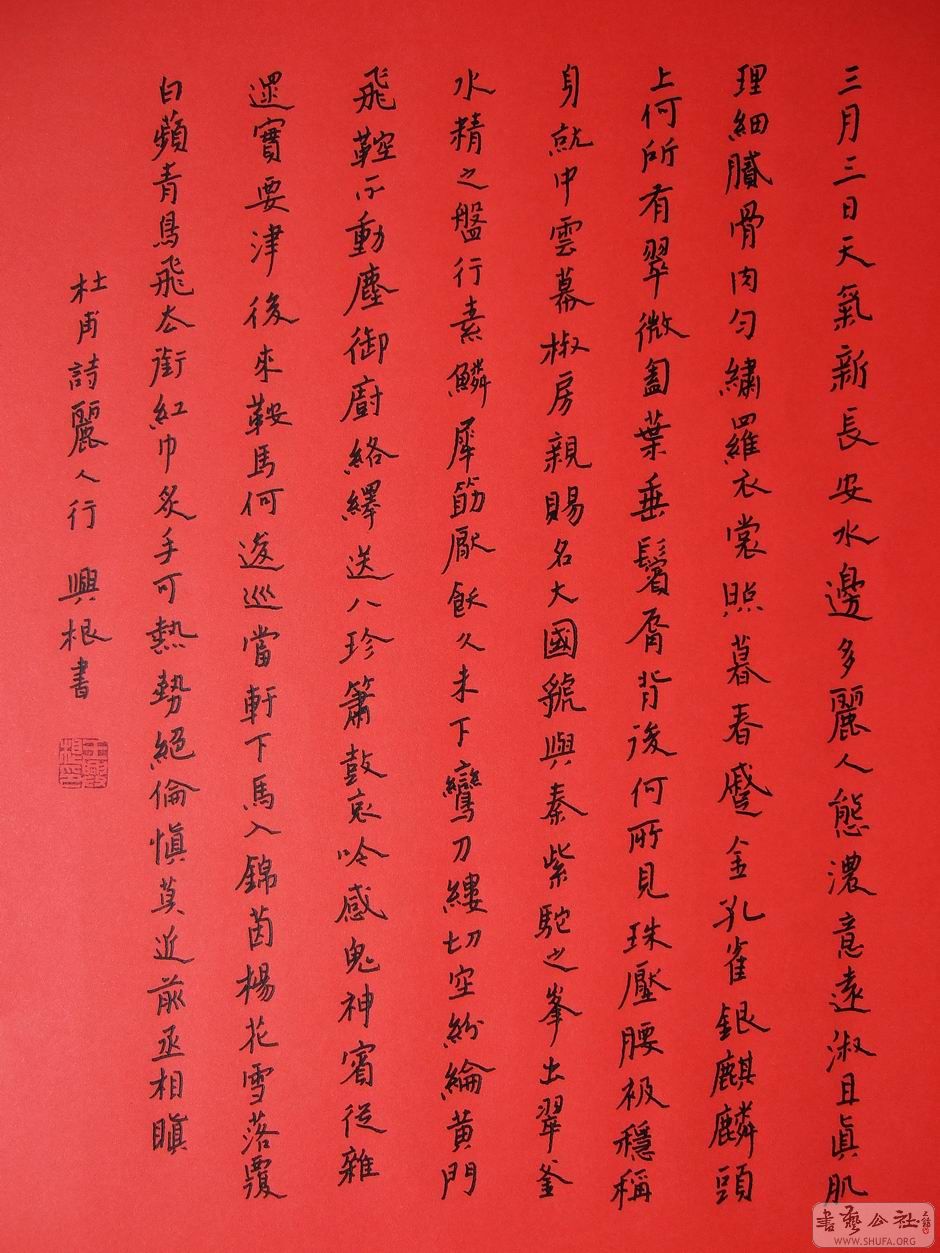 三月三日天氣新長安水邊多麗人態濃意遠淑且真肌
理細膩骨肉勻繡羅衣裳照暮春蹙金孔雀銀麒麟頭
上何所有翠微㔩葉垂鬢脣背後何所見珠壓腰衱穩稱
身就中雲幕椒房親賜名大國虢與秦紫駝之峯出翠釜
水精之盤行素鱗犀筯厭飫久未下鸞刀縷切空紛綸黃門
飛鞚不動塵御廚絡繹送八珍簫鼓哀吟感鬼神賓從雜
遝實要津後來鞍馬何逡巡當軒下馬入錦茵楊花雪落覆
白蘋青鳥飛去銜紅巾炙手可熱勢絕倫慎莫近前丞相瞋
杜甫詩麗人行 興根書
書藝公社
WWW.SHUFA.ORG